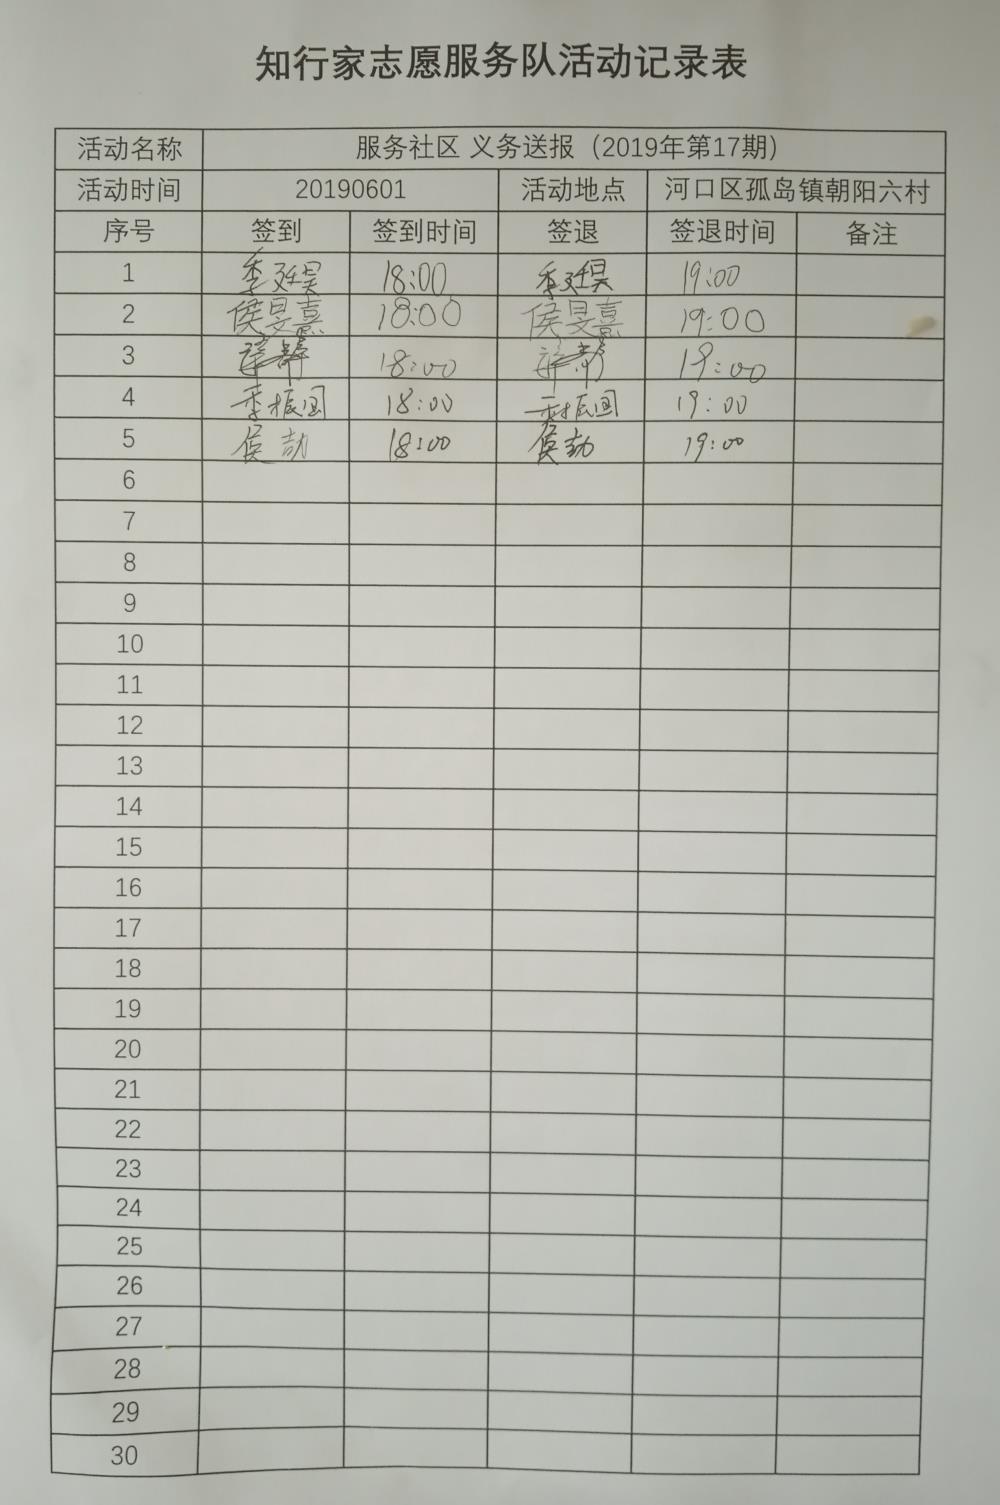 知行家志愿服务队活动记录表
活动名称 服务社区 义务送报（2019年第17期）
活动时间 20190601 活动地点 河口区孤岛镇朝阳六村
序号 签到 签到时间 签退 签退时间 备注
1 李廷昊 18:00 李廷昊 19:00
2 侯旻熹 18:00 侯旻熹 19:00
3 18:00 19:00
4 李振国 18:00 李振国 19:00
5 侯劼 18:00 侯劼 19:00
6
7
8
9
10
11
12
13
14
15
16
17
18
19
20
21
22
23
24
25
26
27
28
29
30